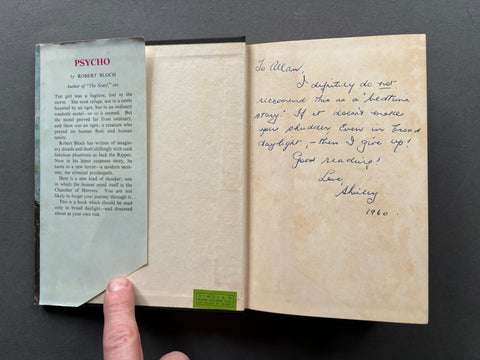 PSYCHO
by ROBERT BLOCH
Author of "The Scarf," etc.
The girl was a fugitive, lost in the
storm. She took refuge, not in a castle
haunted by an ogre, but in an ordinary
roadside motel—or so it seemed. But
the motel proved far from ordinary,
and there was an ogre; a creature who
preyed on human flesh and human
sanity.
Robert Bloch has written of imagin-
ary dreads and flesh chillingly with such
fabulous phantoms as Jack the Ripper.
Now in his latest suspense story, he
turns to a new terror—a modern mon-
ster, the criminal psychopath.
Here is a new kind of shocker; one
in which the human mind itself is the
Chamber of Horrors. You are not
likely to forget your journey through it.
This is a book which should be read
only in broad daylight—and dreamed
about at your own risk.
To Allan,
I definitely do not
reccomend this as a "bedtime
story". If it doesn't make
you shudder even in broad
daylight, - then I give up!
Good reading!
Love
Shirley
1960.